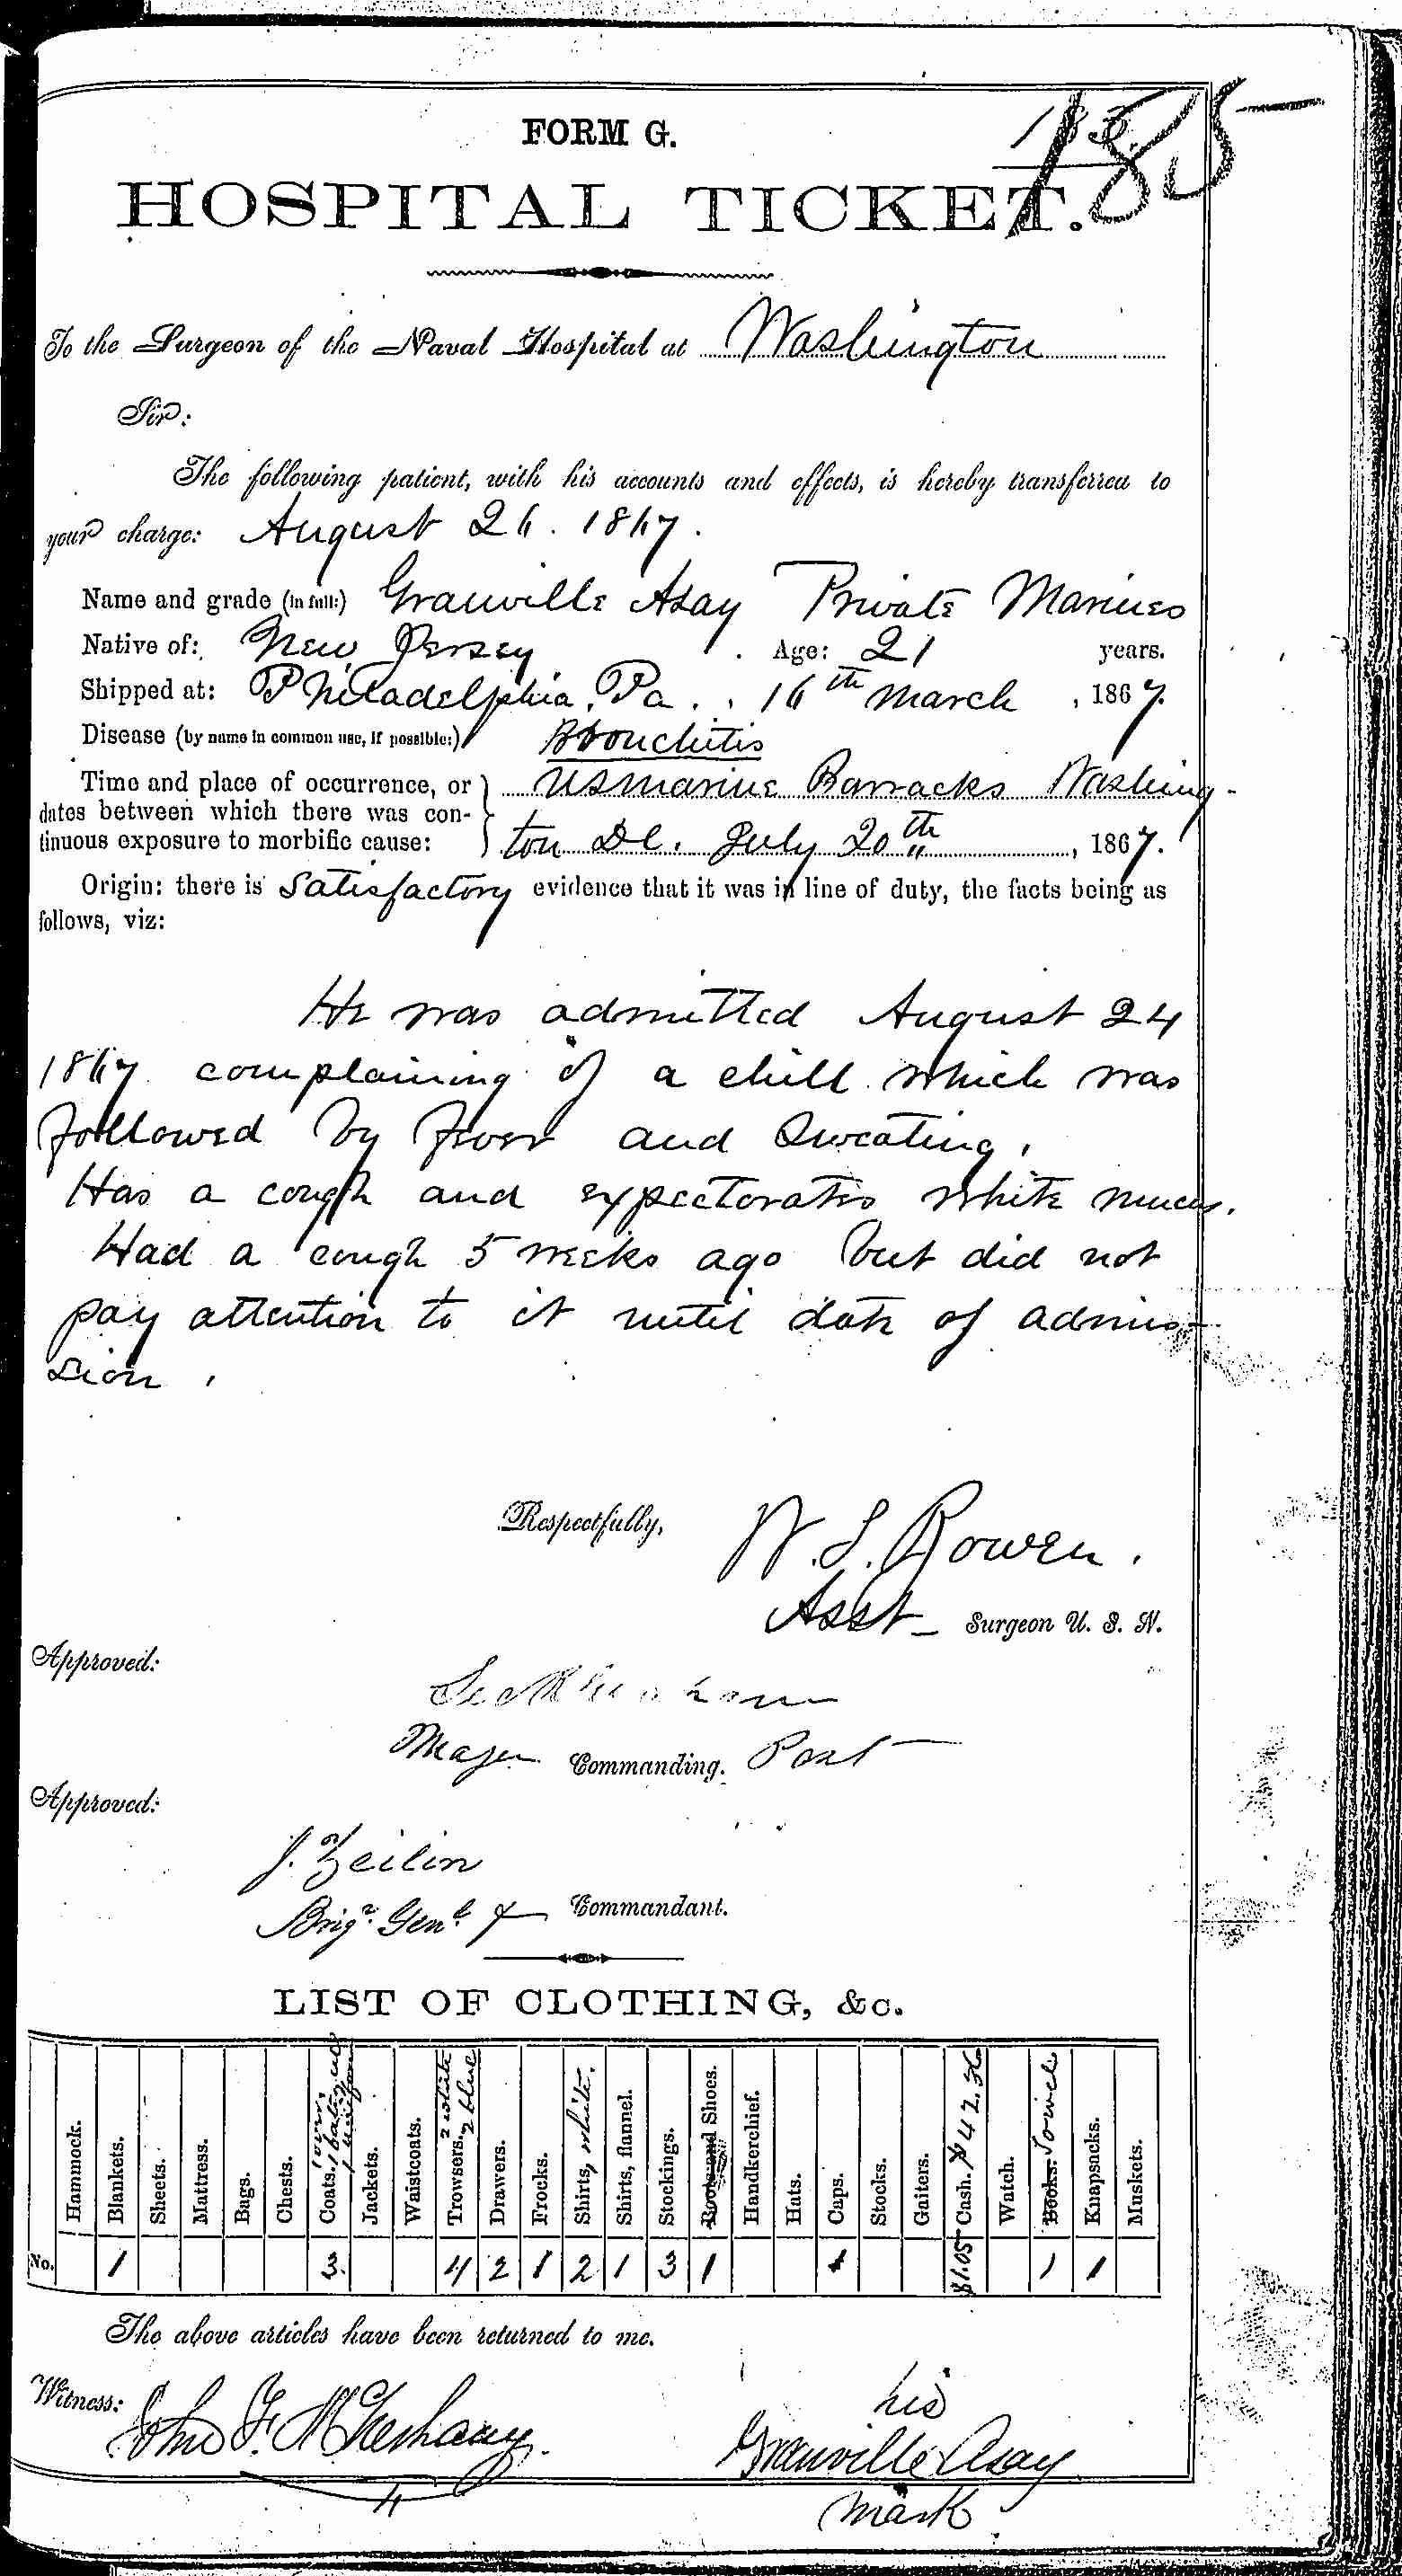 185
FORM G.
HOSPITAL TICKET.
To the Surgeon of the Naval Hospital at Washington
Sir:
The following patient, with his accounts and effects, is hereby transferred to
your charge: August 26. 1867.
Name and grade (in full:) Granville Asay Private Marines
Native of: New Jersey Age: 21 years.
Shipped at: Philadelphia, Pa., 16th March, 1867.
Disease (by name in common use, if possible:) Bronchitis
Time and place of occurrence, or U S Marine Barracks Washing-
dates between which there was con-
tinuous exposure to morbific cause: ton D C. July 20th, 1867.
Origin: there is Satisfactory evidence that it was in line of duty, the facts being as
follows, viz:
He was admitted August 24
1867 complaining of a chill which was
followed by fever and Sweating.
Has a cough and expectorates white mucus.
Had a cough 5 weeks ago but did not
pay attention to it until date of admis-
sion.
Respectfully, W. S. Bowen.
Asst- Surgeon U. S. N.
Approved:
Major Commanding. Post
Approved:
J. Zeilin
Brigr. Genl. & Commandant.
LIST OF CLOTHING, &c.
Hammock. Blankets. Sheets. Mattress. Bags. Chests. Coats. 1 over, 1 fatigue 1 uniform Jackets. Waistcoats. Trowsers. 2 white 2 blue Drawers. Frocks. Shirts, white. Shirts, flannel. Stockings. Boots and Shoes. Handkerchief. Hats. Caps. Stocks. Gaiters. Cash. $42.36 Watch. Books. Knapsacks. Muskets.
No. 1 3. 4 2 1 2 1 3 1 1 $1.05 1 1
The above articles have been returned to me.
Witness: John F. his
Granville x Asay
mark